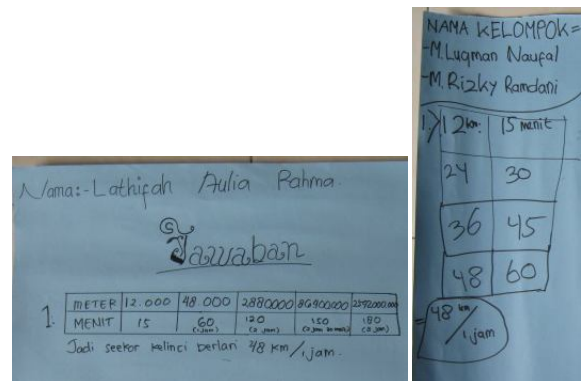 Nama:-Lathifah Aulia Rahma.
Jawaban
1. METER 12.000 48.000 2880000
MENIT 15 60 (1 jam) 120 (2 jam) 150 180 (3 jam)
Jadi seekor kelinci berlari 48 km/1 jam.
NAMA KELOMPOK=
-M.Luqman Naufal
-M.Rizky Ramdani
1.) 12 km 15 menit
24 30
36 45
48 60
= 48 km/1 jam